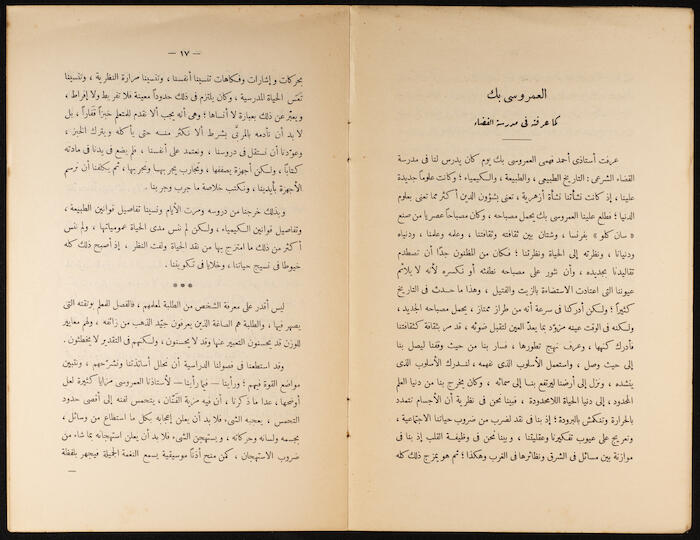 العمروسى بك
كما عرفته فى مدرسة القضاء
عرفت أستاذى أحمد فهمى العمروسى بك يوم كان يدرس لنا فى مدرسة
القضاء الشرعى : التاريخ الطبيعى ، والطبيعة ، والكيمياء ؛ وكانت علوماً جديدة
علينا ، إذ كانت نشأتنا نشأة أزهرية ، تعنى بشؤون الدين أكثر مما تعنى بعلوم
الدنيا ؛ فطلع علينا العمروسى بك يحمل مصباحه ، وكان مصباحاً عصريا من صنع
« سان كلو » بفرنسا ، وشتان بين ثقافته وثقافتنا ، وعلمه وعلمنا ، ودنياه
ودنيانا ، ونظرته إلى الحياة ونظرتنا ؛ فكان من المظنون جدًّا أن تصطدم
تقاليدنا بجديده ، وأن نثور على مصباحه نطفئه أو نكسره لأنه لا يلائم
عيوننا التى اعتادت الاستضاءة بالزيت والفتيل ، وهذا ما حدث فى التاريخ
كثيراً ؛ ولكن أدركنا فى سرعة أنه من طراز ممتاز ، يحمل مصباحه الجديد ،
ولكنه فى الوقت عينه مزوّد بما يعدّ العين لتقبل ضوئه ، قد مر بثقافة كثقافتنا
فأدرك كنهها ، وعرف نهج تطورها ، فسار بنا من حيث وقفنا ليصل بنا
إلى حيث وصل ، واستعمل الأسلوب الذى نفهمه ، لندرك الأسلوب الذى
ينشده ، ونزل إلى أرضنا ليرتفع بنا إلى سمائه ، وكان يخرج بنا من دنيا العلم
المحدود ، إلى دنيا الحياة اللامحدودة ، فبينا نحن فى نظرية أن الأجسام تتمدد
بالحرارة وتنكمش بالبرودة ؛ إذ بنا فى نقد لضرب من ضروب حياتنا الاجتماعية ،
وتعريج على عيوب تفكيرنا وعقليتنا ، وبينا نحن فى وظيفة القلب إذ بنا فى
موازنة بين مسائل فى الشرق ونظائرها فى الغرب وهكذا ؛ ثم هو يمزج ذلك كله
— ١٧ —
بحركات وإشارات وفكاهات تنسينا أنفسنا ، وتنسينا مرارة النظرية ، وتنسينا
تعس الحياة المدرسية ، وكان يلتزم فى ذلك حدوداً معينة فلا تفريط ولا إفراط ،
ويعبّر عن ذلك بعبارة لا أنساها ؛ وهى أنه يجب ألا نقدم للمتعلم خبزاً قفاراً ، بل
لا بد أن نأدمه بالمربَّى بشرط ألا نكثر منه حتى يأكله ويترك الخبز ،
وعوّدنا أن نستقل فى دروسنا ، ونعتمد على أنفسنا ، فلم يضع فى يدنا فى مادته
كتاباً ، ولكن أجهزة يصففها ، وتجارب يجربها ونجربها ، ثم يكلفنا أن نرسم
الأجهزة بأيدينا ، ونكتب خلاصة ما جرب وجربنا .
وبذلك خرجنا من دروسه ومرت الأيام ونسينا تفاصيل قوانين الطبيعة ،
وتفاصيل قوانين الكيمياء ، ولكن لم ننس مدى الحياة عمومياتها ، ولم ننس
أكثر من ذلك ما امتزج بها من نقد الحياة ولفت النظر ، إذ أصبح ذلك كله
خيوطا فى نسيج حياتنا ، وخلايا فى تكويننا .
* * *
ليس أقدر على معرفة الشخص من الطلبة لمعلمهم ، فالفصل للمعلم بوتقته التى
يصهر فيها ، والطلبة هم الصاغة الذين يعرفون جيّد الذهب من زائفه ، ولهم معايير
للوزن قد يحسنون التعبير عنها وقد لا يحسنون ، ولكنهم فى التقدير لا يخطئون .
وقد استطعنا فى فصولنا الدراسية أن نحلل أساتذتنا ونشرّحهم ، ونتبين
مواضع القوة فيهم ؛ ورأينا — فيما رأينا — لأستاذنا العمروسى مزايا كثيرة لعل
أوضحها ، عدا ما ذكرنا ، أن فيه مزية الفنّان ، يتحمس لفنه إلى أقصى حدود
التحمس ، يعجبه الشىء فلا بد أن يعلن إعجابه بكل ما استطاع من وسائل ،
بجسمه ولسانه وحركاته ، ويستهجن الشىء فلا بد أن يعلن استهجانه بما شاء من
ضروب الاستهجان ، كمن منح أذناً موسيقية يسمع النغمة الجميلة فيجهر بلفظة